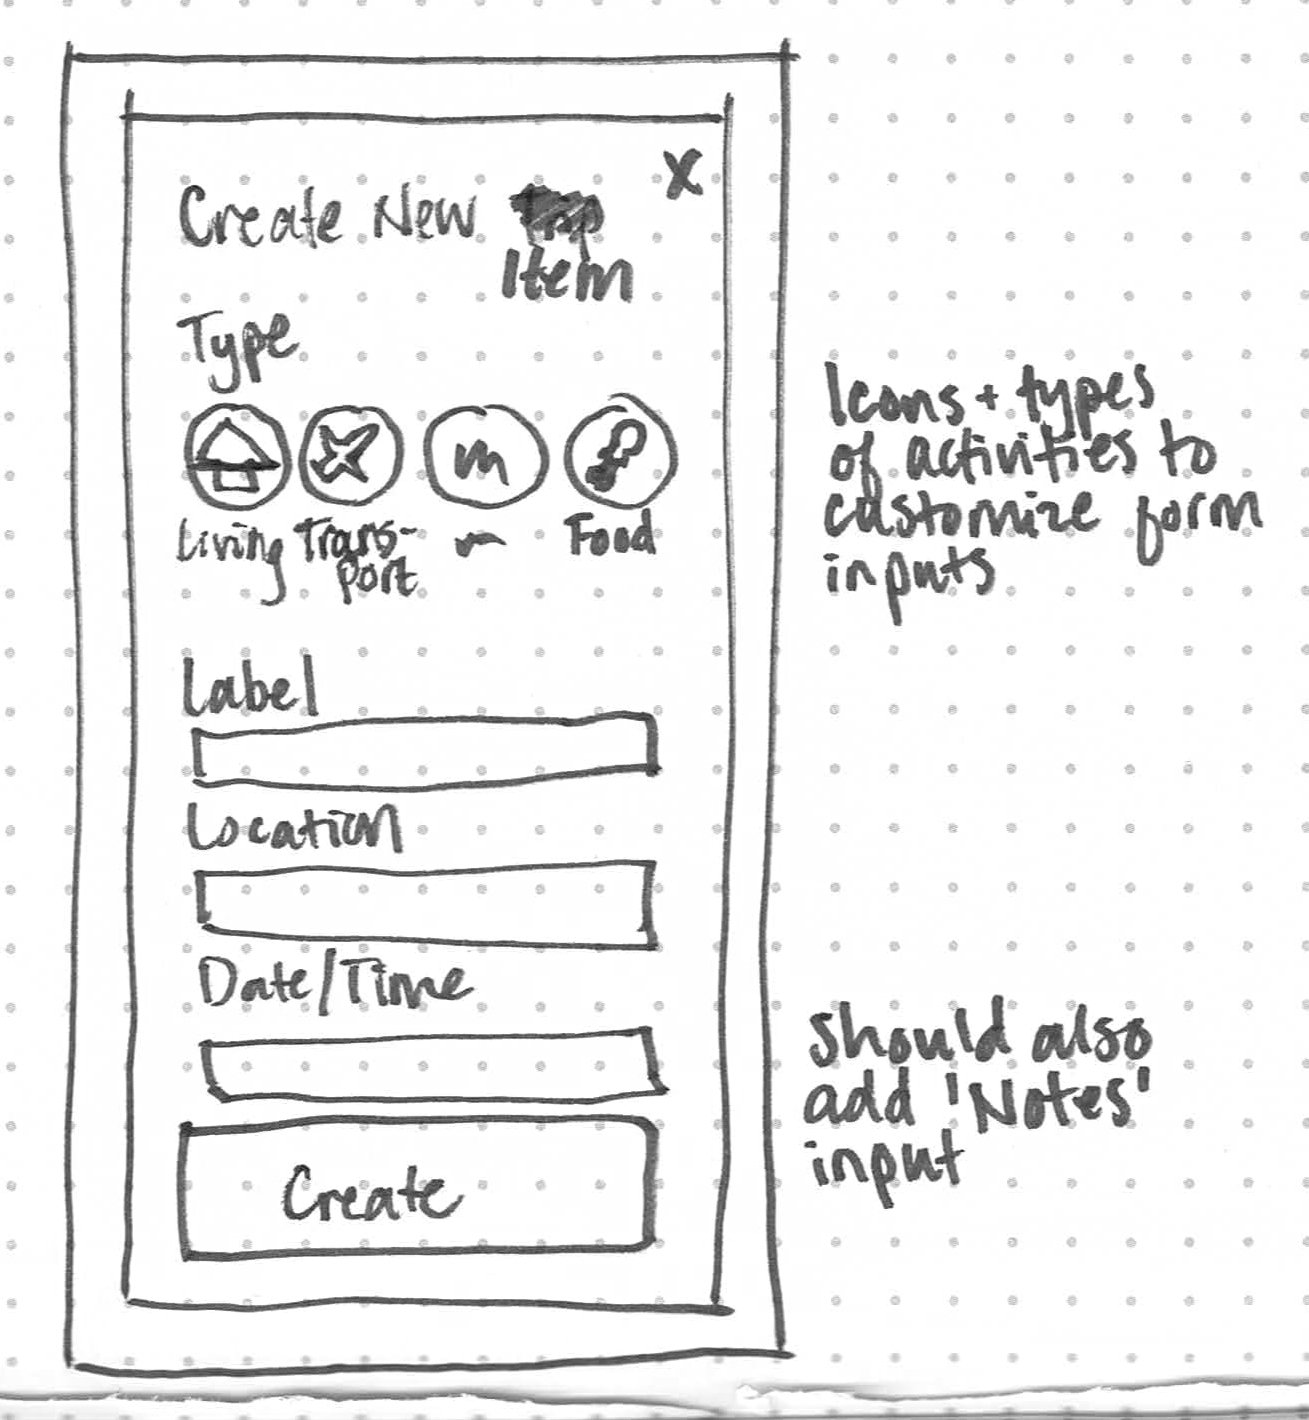 X
Create New
Item
Type
Living Trans-
port
Food
Label
Location
Date/Time
Create
Icons + types
of activities to
customize form
inputs
Should also
add 'Notes'
input